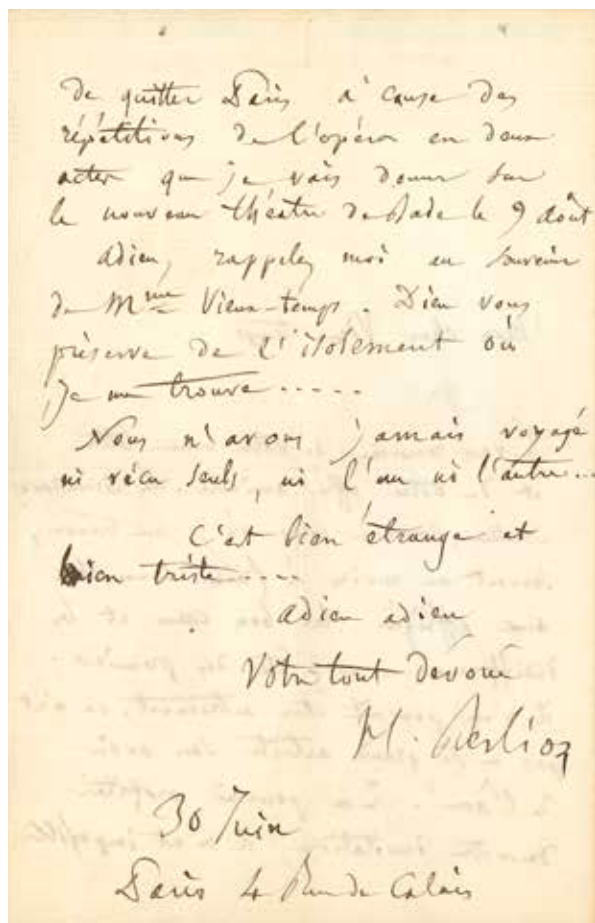 de quitter Paris à cause des
répétitions de l'opéra en deux
actes que je vais donner sur
le nouveau théâtre de Bade le 9 août
adieu, rappelez moi au souvenir
de Mme Vieux-temps. Dieu vous
préserve de l'isolement où
je me trouve.....
Nous n'avons jamais voyagé
ni vécu seuls, ni l'un ni l'autre...
C'est bien étrange et
bien triste....
adieu adieu
Votre tout dévoué
H. Berlioz
30 Juin
Paris 4 Rue de Calais